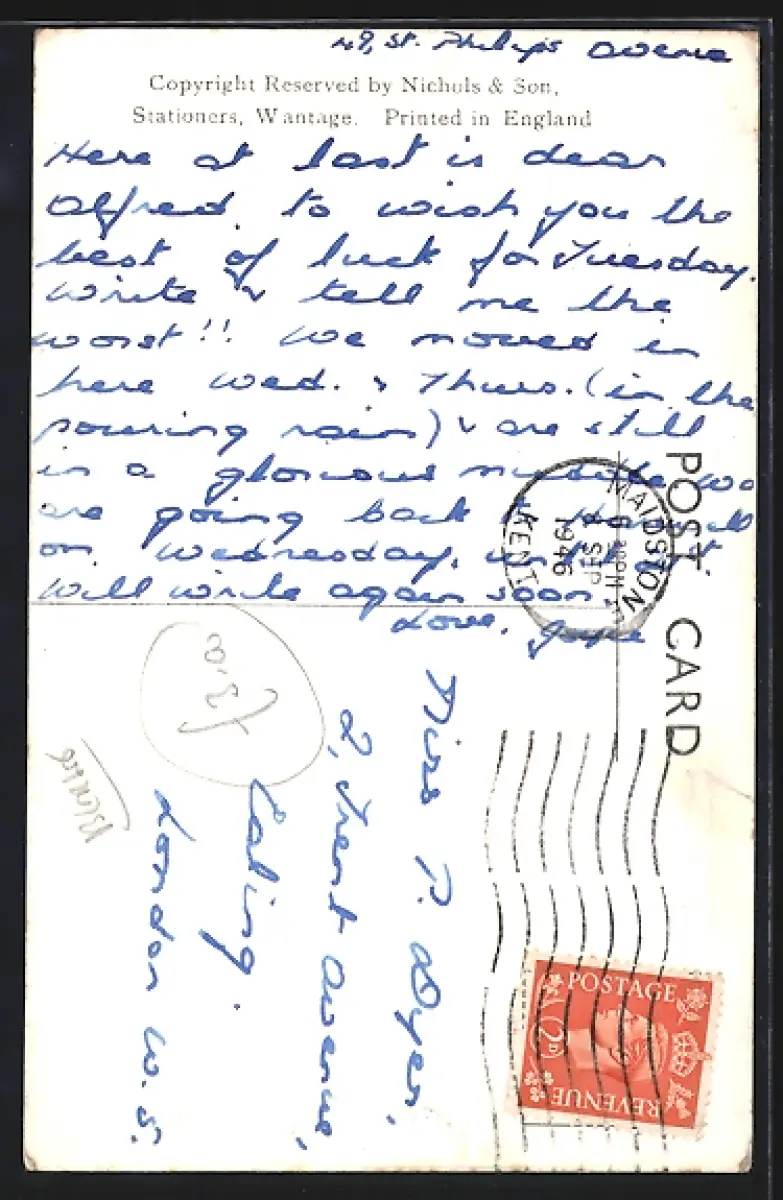 49, St. Philips Avenue
Copyright Reserved by Nichols & Son,
Stationers, Wantage. Printed in England
Here at last is dear
Alfred, to wish you the
best of luck for Tuesday.
Write & tell me the
worst!! We moved in
here Wed. & Thurs. (in the
pouring rain) & are still
in a glorious muddle. We
are going back
on Wednesday,
Will write again soon.
Love, Joyce
POST CARD
MAIDSTONE
KENT
SEP
1946
Miss P. Dyer,
2, Trent Avenue,
Ealing.
London W.5.
POSTAGE
2D
REVENUE